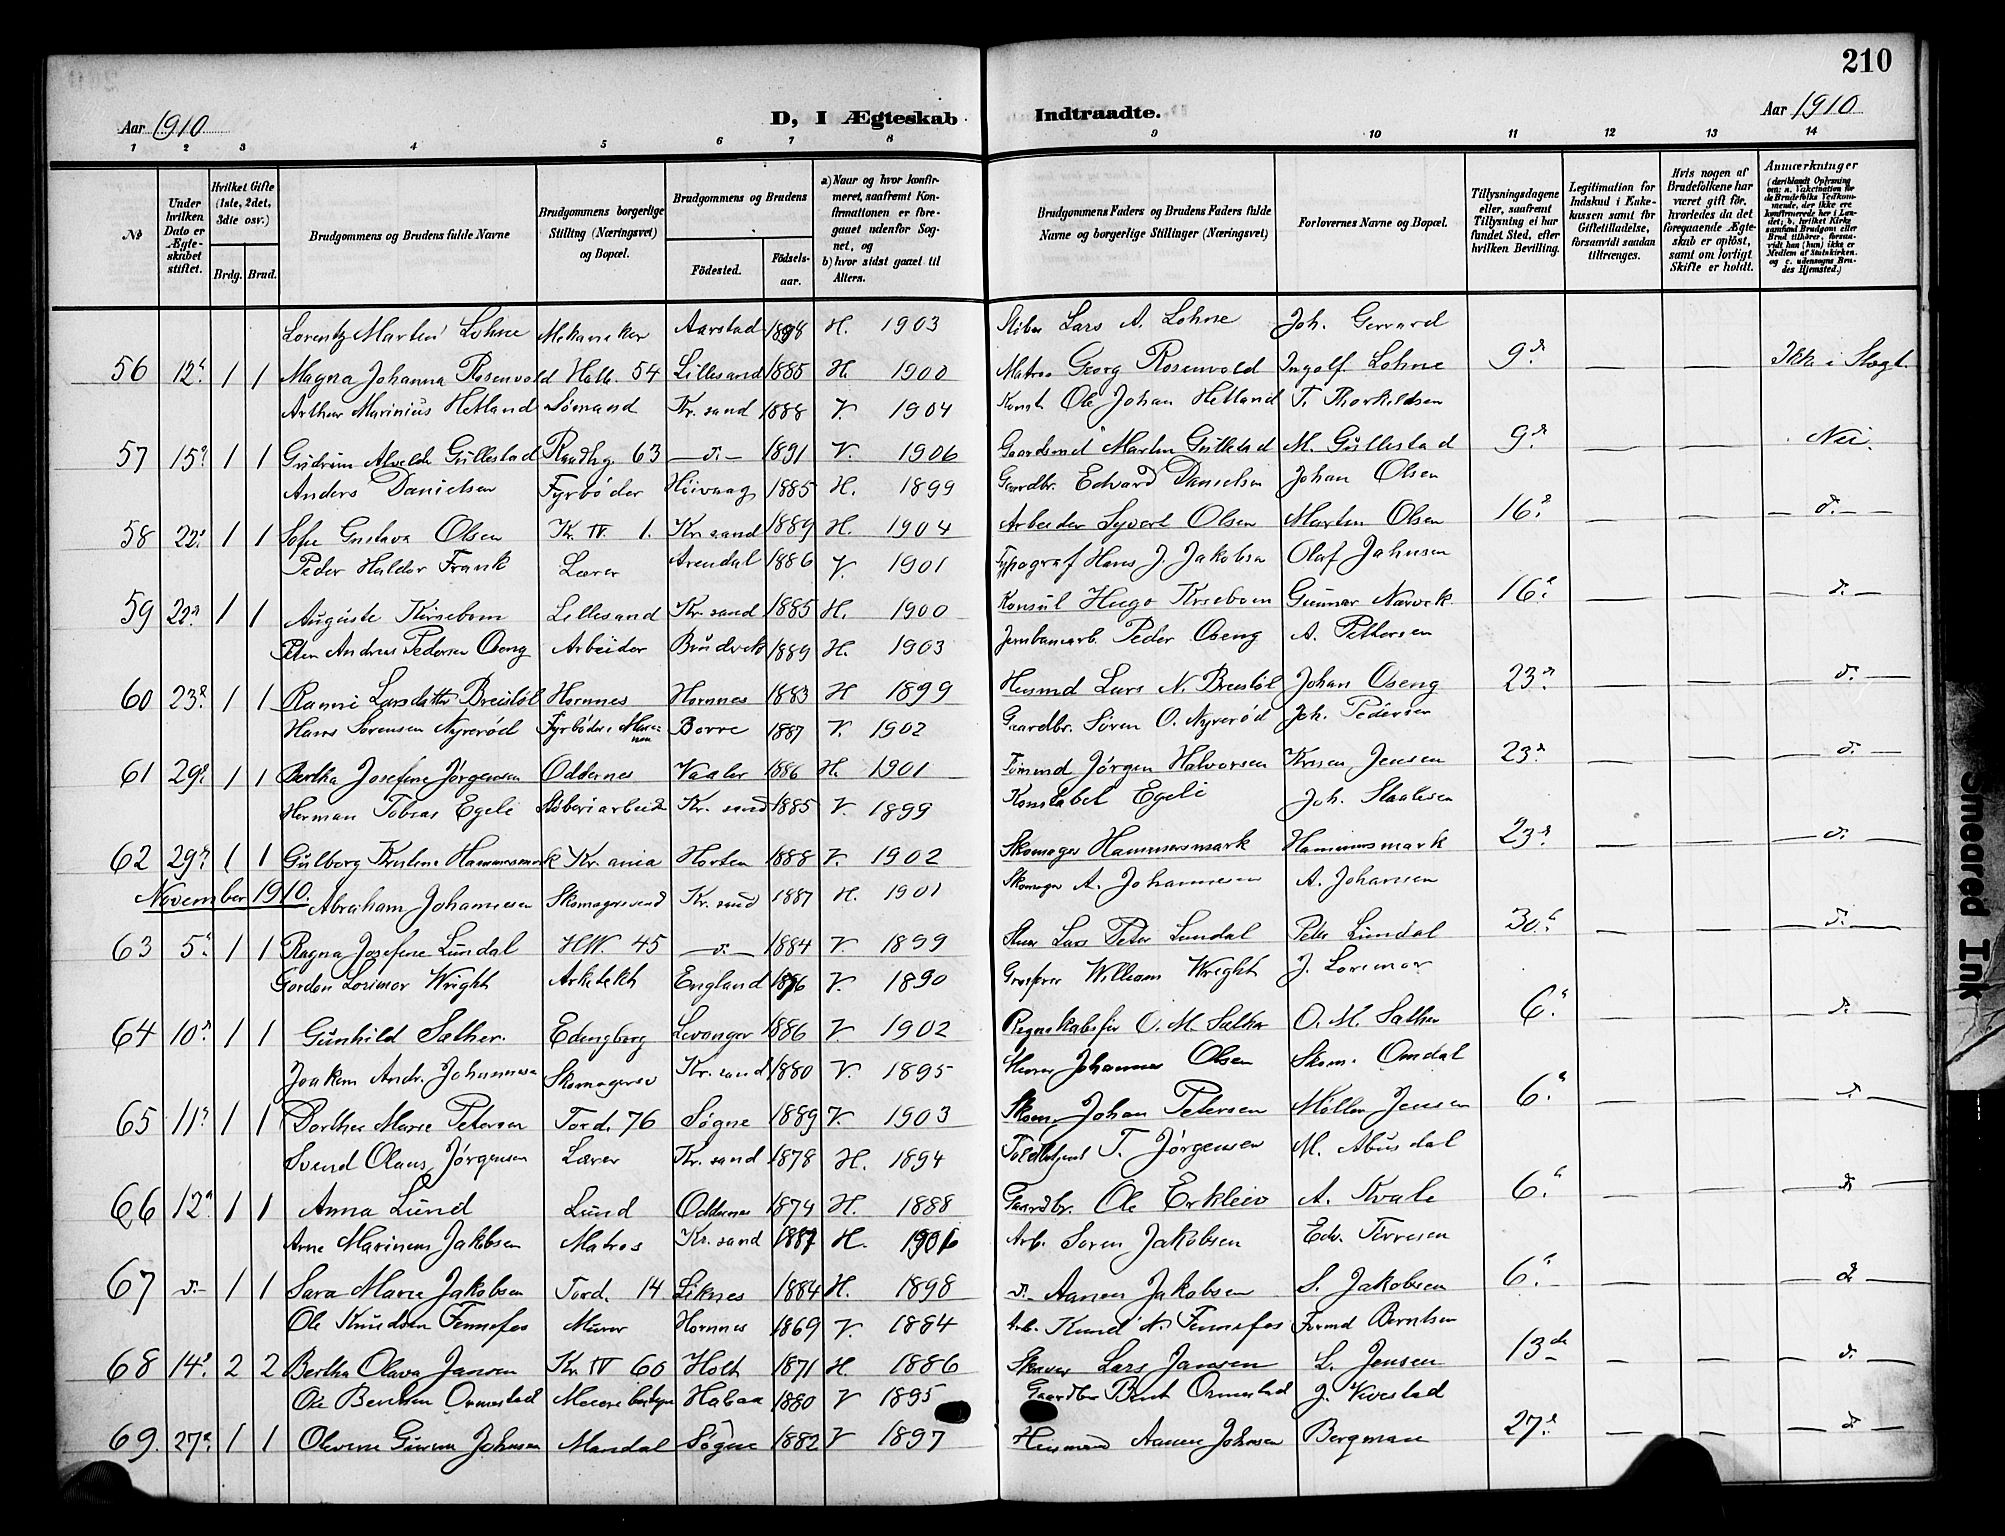 210
Aar 1910
D, I Ægteskab Indtraadte.
Aar 1910
1 2 3 4 5 6 7 8 9 10 11 12 13 14
№
Under hvilken Dato er Ægteskabet stiftet.
Hvilket Gifte (1ste, 2det, 3die osv.)
Brdg. Brud.
Brudgommens og Brudens fulde Navne
Brudgommens borgerlige Stilling (Næringsvei) og Bopæl.
Brudgommens og Brudens
Födested. Födselsaar.
a) Naar og hvor konfirmeret, saafremt Konfirmationen er foregaaet udenfor Sognet, og
b) hvor sidst gaaet til Alters.
Brudgommens Faders og Brudens Faders fulde Navne og borgerlige Stillinger (Næringsvei)
Forlovernes Navne og Bopæl.
Tillysningsdagene eller, saafremt Tillysning ei har fundet Sted, efter hvilken Bevilling.
Legitimation for Indskud i Enkekassen samt for Giftetilladelse, forsaavidt saadan tiltrænges.
Hvis nogen af Brudefolkene har været gift før, hvorledes da det foregaaende Ægteskab er oplöst, samt om lovligt Skifte er holdt.
Anmærkninger (deriblandt Oplysning om: a. Vakcination for de Brudefolks Vedkommende, der ikke ere konfirmerede her i Landet; b. hvilket Kirkesamfund Brudgom eller Brud tilhörer, forsaavidt han (hun) ikke er Medlem af Statskirken, og c. udensogns Brudes Hjemsted.)
Lorentz Martin Lohne Mekaniker Aarstad 1888 H. 1903 Lars A. Lohne Joh. Gerrard
56 12te 1 1 Magna Johanna Rosenvold Holb. 54 Lillesand 1885 H. 1900 Matros Georg Rosenvold Ingolf Lohne 9de — — Ikke i Slægt.
Arthur Marinius Hetland Sömand Kr. sand 1888 V. 1904 Konst. Ole Johan Hetland T. Thorkildsen
57 15de 1 1 Gudrun Alvilde Gullestad Raadhg. 63 —d.— 1891 V. 1906 Gaardmd Martin Gullestad M. Gullestad 9de — — Nei.
Anders Danielsen Fyrböder Höivaag 1885 H. 1899 Gaardbr. Edvard Danielsen Johan Olsen
58 22de 1 1 Sofie Gustava Olsen Kr. IV. 1. Kr. sand 1889 H. 1904 Arbeider Syvert Olsen Martin Olsen 16de — — — d. —
Peder Haldor Frank Lærer Arendal 1886 V. 1901 Typograf Hans J. Jakobsen Olaf Jahnsen
59 22de 1 1 Auguste Kirsebom Lillesand Kr. sand 1885 H. 1900 Konsul Hugo Kirsebom Gunnar Narvik 16de — — d. —
Peter Andreas Pedersen Oseng Arbeider 1889 H. 1903 Jernbanearb. Peder Oseng A. Pettersen
60 23de 1 1 Ranni Larsdatter Breistöl Hornnes Hornnes 1883 H 1899 Husmd Lars N. Breistöl Johan Oseng 23de — — d.
Hans Sörensen Nyreröd Fyrböder i Marinen Borre 1887 V. 1902 Gaardbr. Sören O. Nyreröd Joh. Pedersen
61 29de 1 1 Bertha Josefine Jørgensen Oddernes Vaaler 1886 H. 1901 Tömmd Jørgen Halvorsen Jensen 23de — — — d. —
Herman Tobias Egeli Støberiarbeid. Kr. sand 1885 V. 1899 Konstabel Egeli Joh. Staalesen
62 29de 1 1 Gulborg Kristine Hammersmark Kr. ania Horten 1888 V. 1902 Skomager Hammersmark Hammersmark 23de — — — d. —
November 1910. Abraham Johannesen Skomagersvend Kr. sand 1887 H. 1901 Skomager A. Johannesen A. Johansen
63 5te 1 1 Ragna Josefine Lundal HW. 45 —d.— 1884 V. 1899 Lars Peter Lundal Peter Lundal 30te — — — d. —
Gordon Lorimer Wright Arkitekt England 1876 V. 1890 William Wright J. Lorimer
64 10de 1 1 Gunhild Sather. Edingborg Levanger 1886 V. 1902 Regnskabsför O. M. Sather O. M. Sather 6te — — — d. —
Joakim Andr. Johannesen Skomagersv Kr. sand 1880 V. 1895 Johannes Olsen Skom. Omdal
65 11te 1 1 Dorthea Marie Petersen Tord. 76 Søgne 1889 V. 1903 Skom. Johan Petersen Møller Jensen 6te — — — d —
Svend Olaus Jørgensen Lærer Kr. sand 1878 H. 1894 Toldbetjent T. Jørgensen M. Abusdal
66 12te 1 1 Anna Lund Lund Oddernes 1874 H. 1888 Gaardbr. Ole Erkleiv A. Kvale 6te — — — d —
Arne Marinius Jakobsen Matros Kr. sand 1887 H. 1901 Arb. Soren Jakobsen Edv. Terresen
67 d. 1 1 Sara Marie Jakobsen Tord. 14 Liknes 1884 H. 1898 d. Aanen Jakobsen S. Jakobsen 6te — — — d —
Ole Knudsen Fennefos Murer Hornnes 1869 V. 1884 Arb. Knud N. Fennefos Formd Berntsen
68 14de 2 2 Bertha Olava Jansen Kr. IV 60 Holt 1871 H 1886 Lars Jansen L. Jensen 13de — — — d. —
Ole Bentsen Ormestad Meieribestyr 1880 V 1895 Gaardbr Bent Ormestad J. Kvestad
69. 27de 1 1 Olevine Johnsen Mandal Søgne 1882 V 1897 Husmand Aanen Johnsen Bergman 27de — — — d —
Smeared Ink